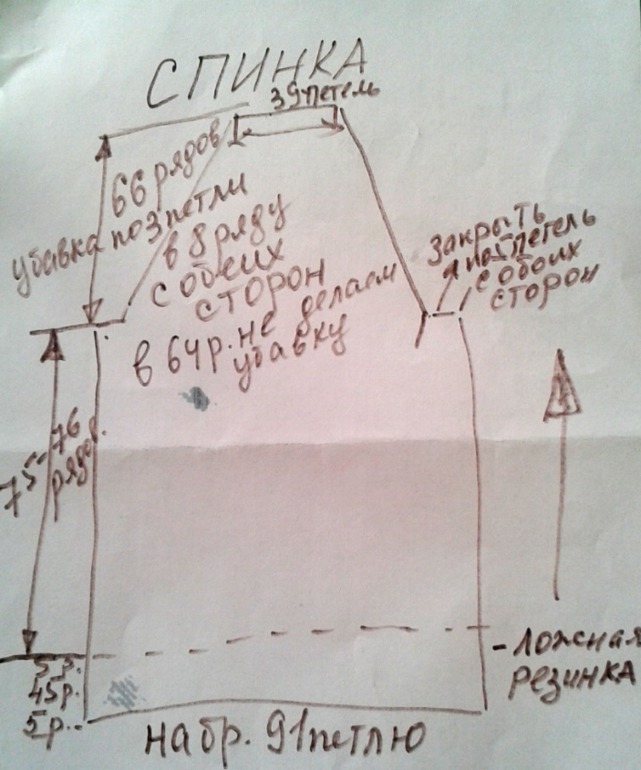 СПИНКА
39 петель
66 рядов
убавка по 3 петли
в 8 ряду
с обеих
сторон
в 64 р. не делаем
убавку
закрыть
по 5 петель
с обоих
сторон
75-76
рядов.
5 р.
45 р.
5 р.
- ложная
резинка
набр. 91 петлю